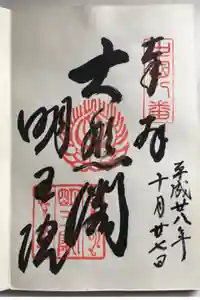 奉拝
大悲閣
明王院
平成廿八年
十月廿七日